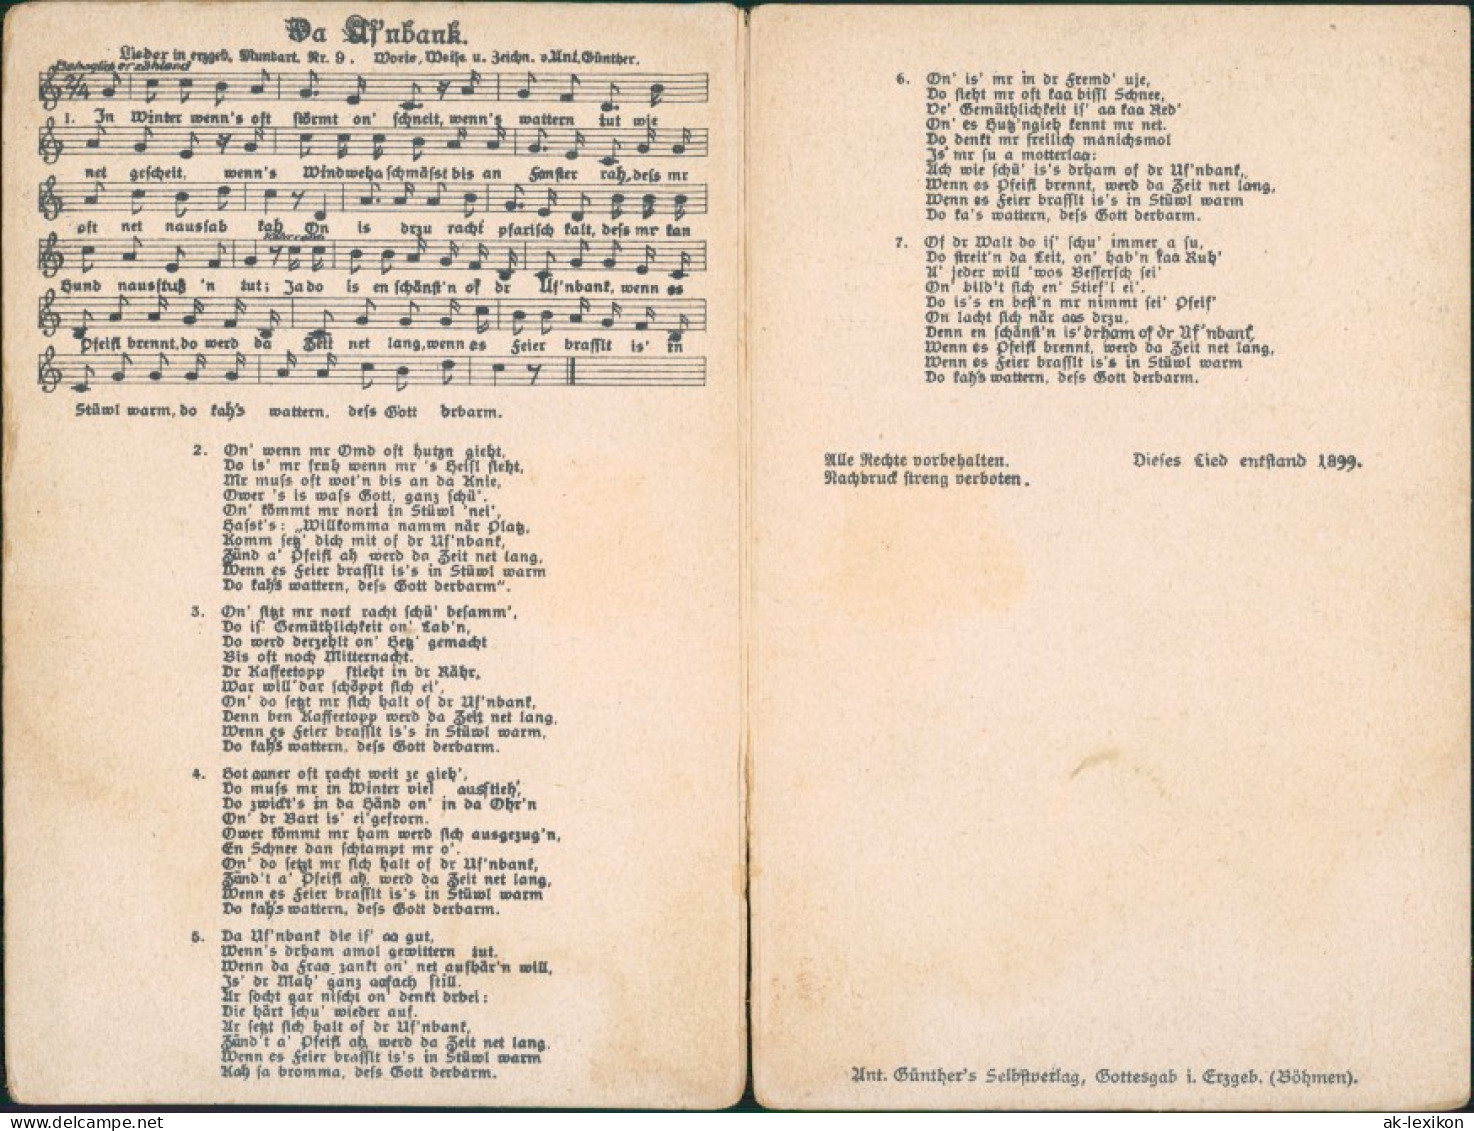 Da Uf'nbank.
Lieder in erzgeb. Mundart. Nr. 9. Worte, Weise u. Zeichn. v. Ant. Günther.
Behaglich erzählend
1. In Winter wenn's oft störmt on' schneit, wenn's wattern tut wie
net gescheit, wenn's Windweha schmässt bis an Fanster rah, dess mr
oft net naussah kah On is drzu racht pfarisch kalt, dess mr kan
Kehrreim
Hund nausstuß 'n tut; Ja do is en schänst'n of dr Uf'nbank, wenn es
Pfeifl brennt, do werd da Zeit net lang, wenn es Feier brasslt is' in
Stüwl warm, do kah's wattern, dess Gott drbarm.
2. On' wenn mr Omd oft hutzn gieht,
Do is' mr fruh wenn mr 's Heisl sieht,
Mr muss oft wot'n bis an da Knie,
Ower 's is wass Gott, ganz schü'.
On' kömmt mr nort in Stüwl 'nei',
Hasst's: „Willkomma namm när Platz,
Komm setz' dich mit of dr Uf'nbank,
Zünd a' Pfeifl ah werd da Zeit net lang,
Wenn es Feier brasslt is's in Stüwl warm
Do kah's wattern, dess Gott derbarm".
3. On' sitzt mr nort racht schü' besamm',
Do is' Gemüthlichkeit on' Lab'n,
Do werd derzehlt on' Hetz' gemacht
Bis oft noch Mitternacht.
Dr Kaffeetopp stieht in dr Rähr,
War will dar schöppt sich ei',
On' do setzt mr sich halt of dr Uf'nbank,
Denn ben Kaffeetopp werd da Zeit net lang,
Wenn es Feier brasslt is's in Stüwl warm,
Do kah's wattern, dess Gott derbarm.
4. Hot aaner oft racht weit ze gieh',
Do muss mr in Winter viel ausstieh',
Do zwickt's in da Händ on' in da Ohr'n
On' dr Bart is' ei'gefrorn.
Ower kömmt mr ham werd sich ausgezug'n,
En Schnee dan schtampt mr o'.
On' do setzt mr sich halt of dr Uf'nbank,
Zünd't a' Pfeifl ah, werd da Zeit net lang,
Wenn es Feier brasslt is's in Stüwl warm
Do kah's wattern, dess Gott derbarm.
5. Da Uf'nbank die is' aa gut,
Wenn's drham amol gewittern tut.
Wenn da Fraa zankt on' net aufhär'n will,
Is' dr Mah' ganz aafach still.
Ar socht gar nischt on' denkt drbei:
Die härt schu' wieder auf.
Ar setzt sich halt of dr Uf'nbank,
Zünd't a' Pfeifl ah werd da Zeit net lang,
Wenn es Feier brasslt is's in Stüwl warm
Kah sa bromma, dess Gott derbarm.
6. On' is' mr in dr Fremd' uje,
Do sieht mr oft kaa bissl Schnee,
Ve' Gemüthlichkeit is' aa kaa Red'
On' es Hutz'ngieh kennt mr net.
Do denkt mr freilich manichsmol
Is' mr su a motterlaa:
Ach wie schü' is's drham of dr Uf'nbank,
Wenn es Pfeifl brennt, werd da Zeit net lang,
Wenn es Feier brasslt is's in Stüwl warm
Do ka's wattern, dess Gott derbarm.
7. Of dr Walt do is' schu' immer a su,
Do streit'n da Leit, on' hab'n kaa Ruh'
A' jeder will 'wos Bessersch sei'
On' bild't sich en' Stief'l ei'.
Do is's en best'n mr nimmt sei' Pfeif'
On lacht sich när aas drzu,
Denn en schänst'n is' drham of dr Uf'nbank,
Wenn es Pfeifl brennt, werd da Zeit net lang,
Wenn es Feier brasslt is's in Stüwl warm
Do kah's wattern, dess Gott derbarm.
Alle Rechte vorbehalten. Dieses Lied entstand 1899.
Nachdruck streng verboten.
Ant. Günther's Selbstverlag, Gottesgab i. Erzgeb. (Böhmen).
ak-lexikon